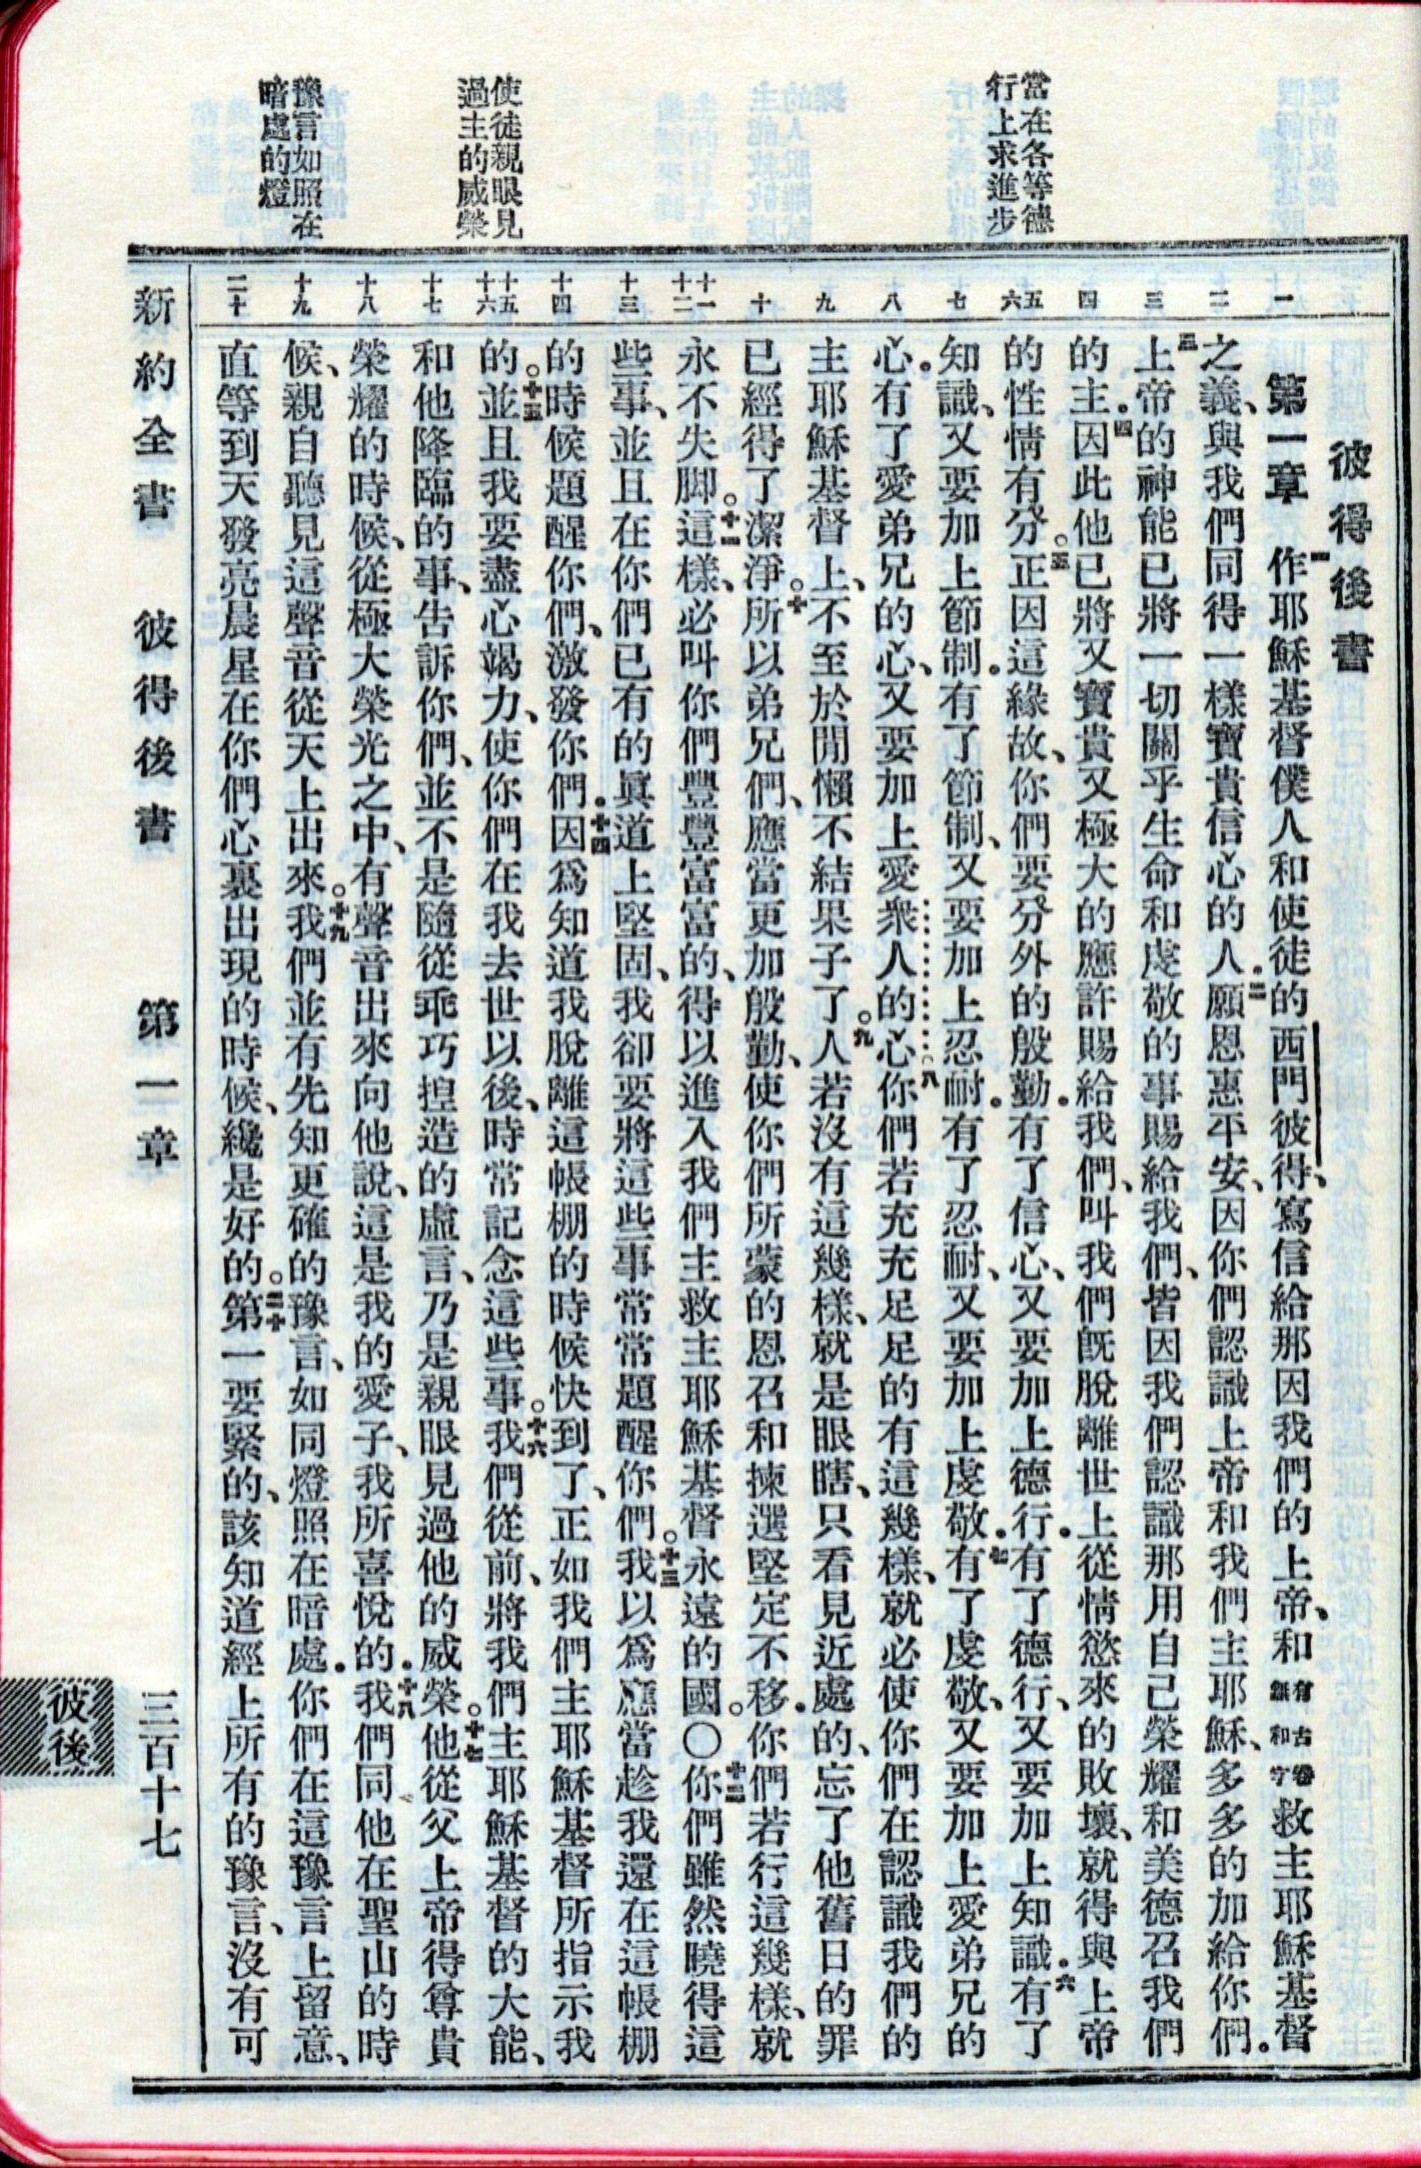 當在各等德
行上求進步
使徒親眼見
過主的威榮
豫言如照在
暗處的燈
一
二
三
四
五
六
七
八
九
十
十一
十二
十三
十四
十五
十六
十七
十八
十九
二十
彼得後書
第一章 一作耶穌基督僕人和使徒的西門彼得、寫信給那因我們的上帝、和有古卷無和字救主耶穌基督
之義、與我們同得一樣寶貴信心的人。二願恩惠平安、因你們認識上帝和我們主耶穌、多多的加給你們。
三上帝的神能已將一切關乎生命和虔敬的事賜給我們、皆因我們認識那用自己榮耀和美德召我們
的主。四因此他已將又寶貴又極大的應許賜給我們、叫我們旣脫離世上從情慾來的敗壞、就得與上帝
的性情有分。五正因這緣故、你們要分外的殷勤。有了信心、又要加上德行。有了德行、又要加上知識。六有了
知識、又要加上節制。有了節制、又要加上忍耐。有了忍耐、又要加上虔敬。七有了虔敬、又要加上愛弟兄的
心。有了愛弟兄的心、又要加上愛衆人的心。八你們若充充足足的有這幾樣、就必使你們在認識我們的
主耶穌基督上、不至於閒懶不結果子了。九人若沒有這幾樣、就是眼瞎、只看見近處的、忘了他舊日的罪
已經得了潔淨。十所以弟兄們、應當更加殷勤、使你們所蒙的恩召和揀選堅定不移。你們若行這幾樣、就
永不失脚。十一這樣、必叫你們豐豐富富的、得以進入我們主救主耶穌基督永遠的國。〇十二你們雖然曉得這
些事、並且在你們已有的眞道上堅固、我卻要將這些事常常題醒你們。十三我以爲應當趁我還在這帳棚
的時候題醒你們、激發你們。十四因爲知道我脫離這帳棚的時候快到了、正如我們主耶穌基督所指示我
的。十五並且我要盡心竭力、使你們在我去世以後、時常記念這些事。十六我們從前、將我們主耶穌基督的大能、
和他降臨的事、告訴你們、並不是隨從乖巧揑造的虛言、乃是親眼見過他的威榮。十七他從父上帝得尊貴
榮耀的時候、從極大榮光之中、有聲音出來向他說、這是我的愛子、我所喜悅的。十八我們同他在聖山的時
候、親自聽見這聲音從天上出來。十九我們並有先知更確的豫言、如同燈照在暗處。你們在這豫言上留意、
直等到天發亮晨星在你們心裏出現的時候、纔是好的。二十第一要緊的、該知道經上所有的豫言、沒有可
新約全書 彼得後書 第一章 三百十七
彼後